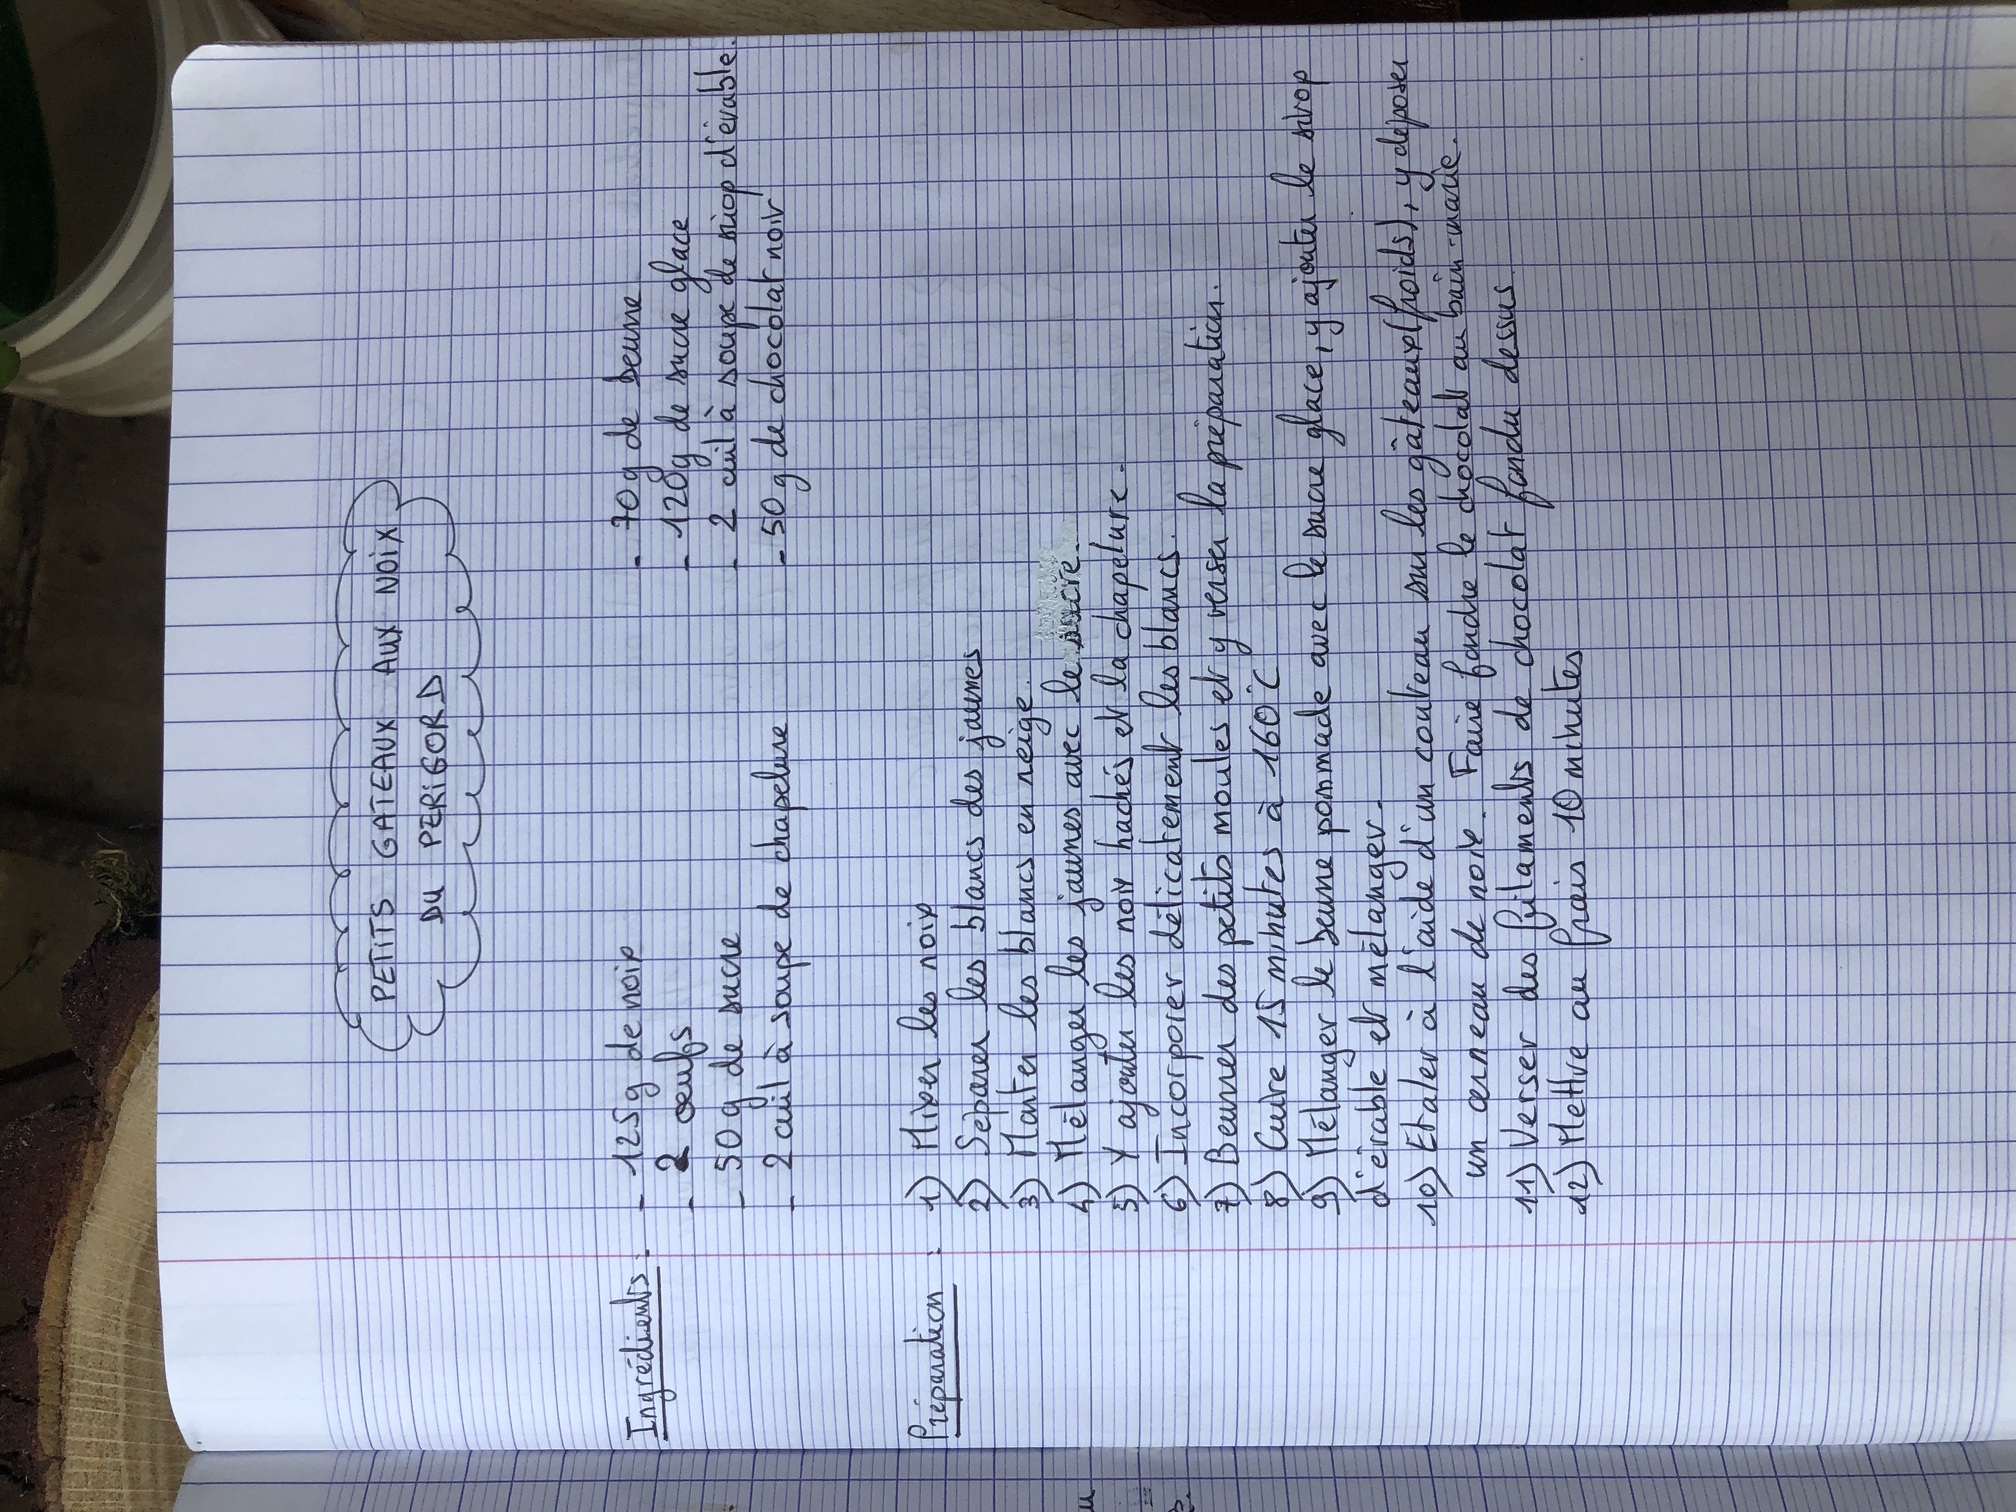 PETITS GATEAUX AUX NOIX
DU PERIGORD
Ingrédients : - 125g de noix
- 2 oeufs
- 50g de sucre
- 2 cuil à soupe de chapelure
- 70g de beurre
- 120g de sucre glace
- 2 cuil à soupe de sirop d'érable.
- 50g de chocolat noir
Préparation : 1) Mixer les noix
2) Séparer les blancs des jaunes
3) Monter les blancs en neige.
4) Mélanger les jaunes avec le sucre.
5) Y ajouter les noix hachés et la chapelure.
6) Incorporer délicatement les blancs.
7) Beurrer des petits moules et y verser la préparation.
8) Cuire 15 minutes à 160°C
9) Mélanger le beurre pommade avec le sucre glace, y ajouter le sirop
d'érable et mélanger.
10) Etaler à l'aide d'un couteau sur les gâteaux (froids), y déposer
un cerneau de noix. Faire fondre le chocolat au bain-marie.
11) Verser des filaments de chocolat fondu dessus
12) Mettre au frais 10 minutes